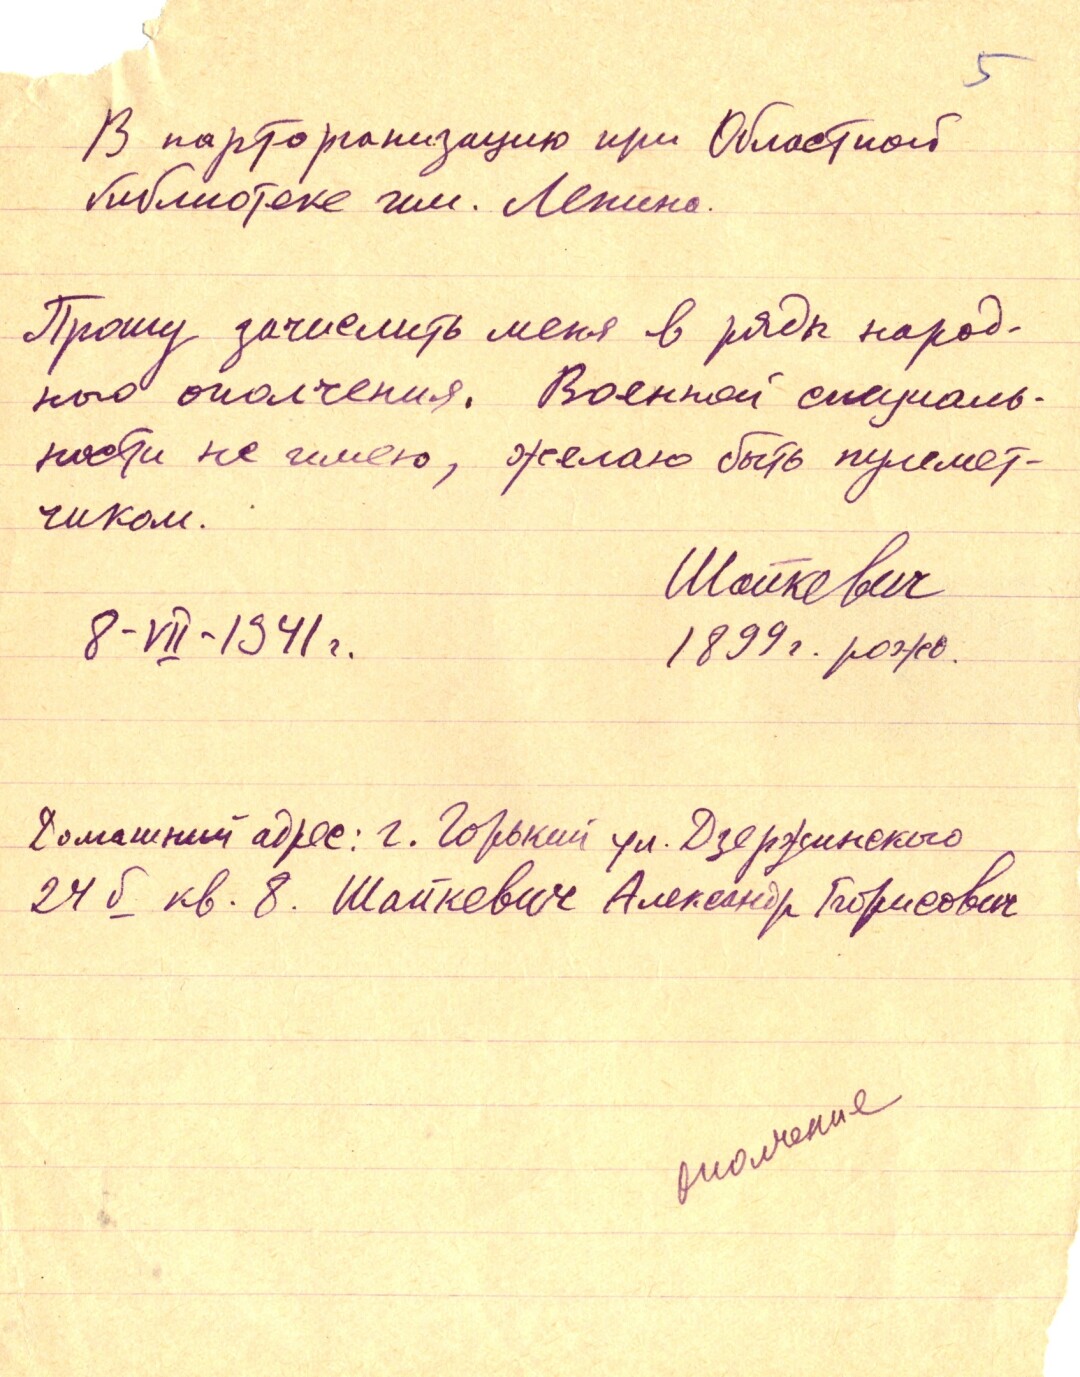 5
В парторганизацию при Областной
библиотеке им. Ленина.
Прошу зачислить меня в ряды народ-
ного ополчения. Военной специаль-
ности не имею, желаю быть пулемет-
чиком.
Шапкевич
8-VII-1941 г.
1899 г. рожд.
Домашний адрес: г. Горький ул. Дзержинского
24 б кв. 8. Шапкевич Александр Борисович
ополчение